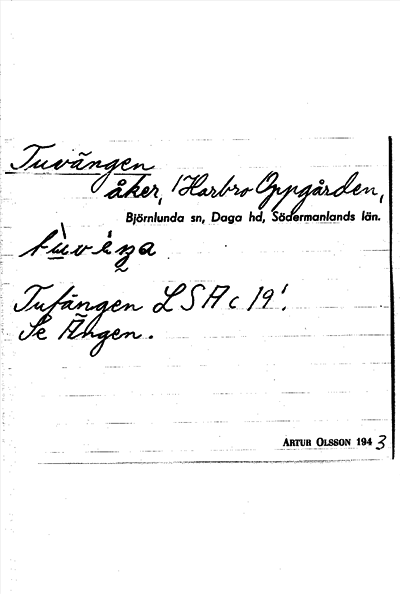 Tuvängen
åker, Harbro Oppgården,
Björnlunda sn, Daga hd, Södermanlands län.
Tufängen LSA c 19'.
Se Ängen.
ARTUR OLSSON 1943